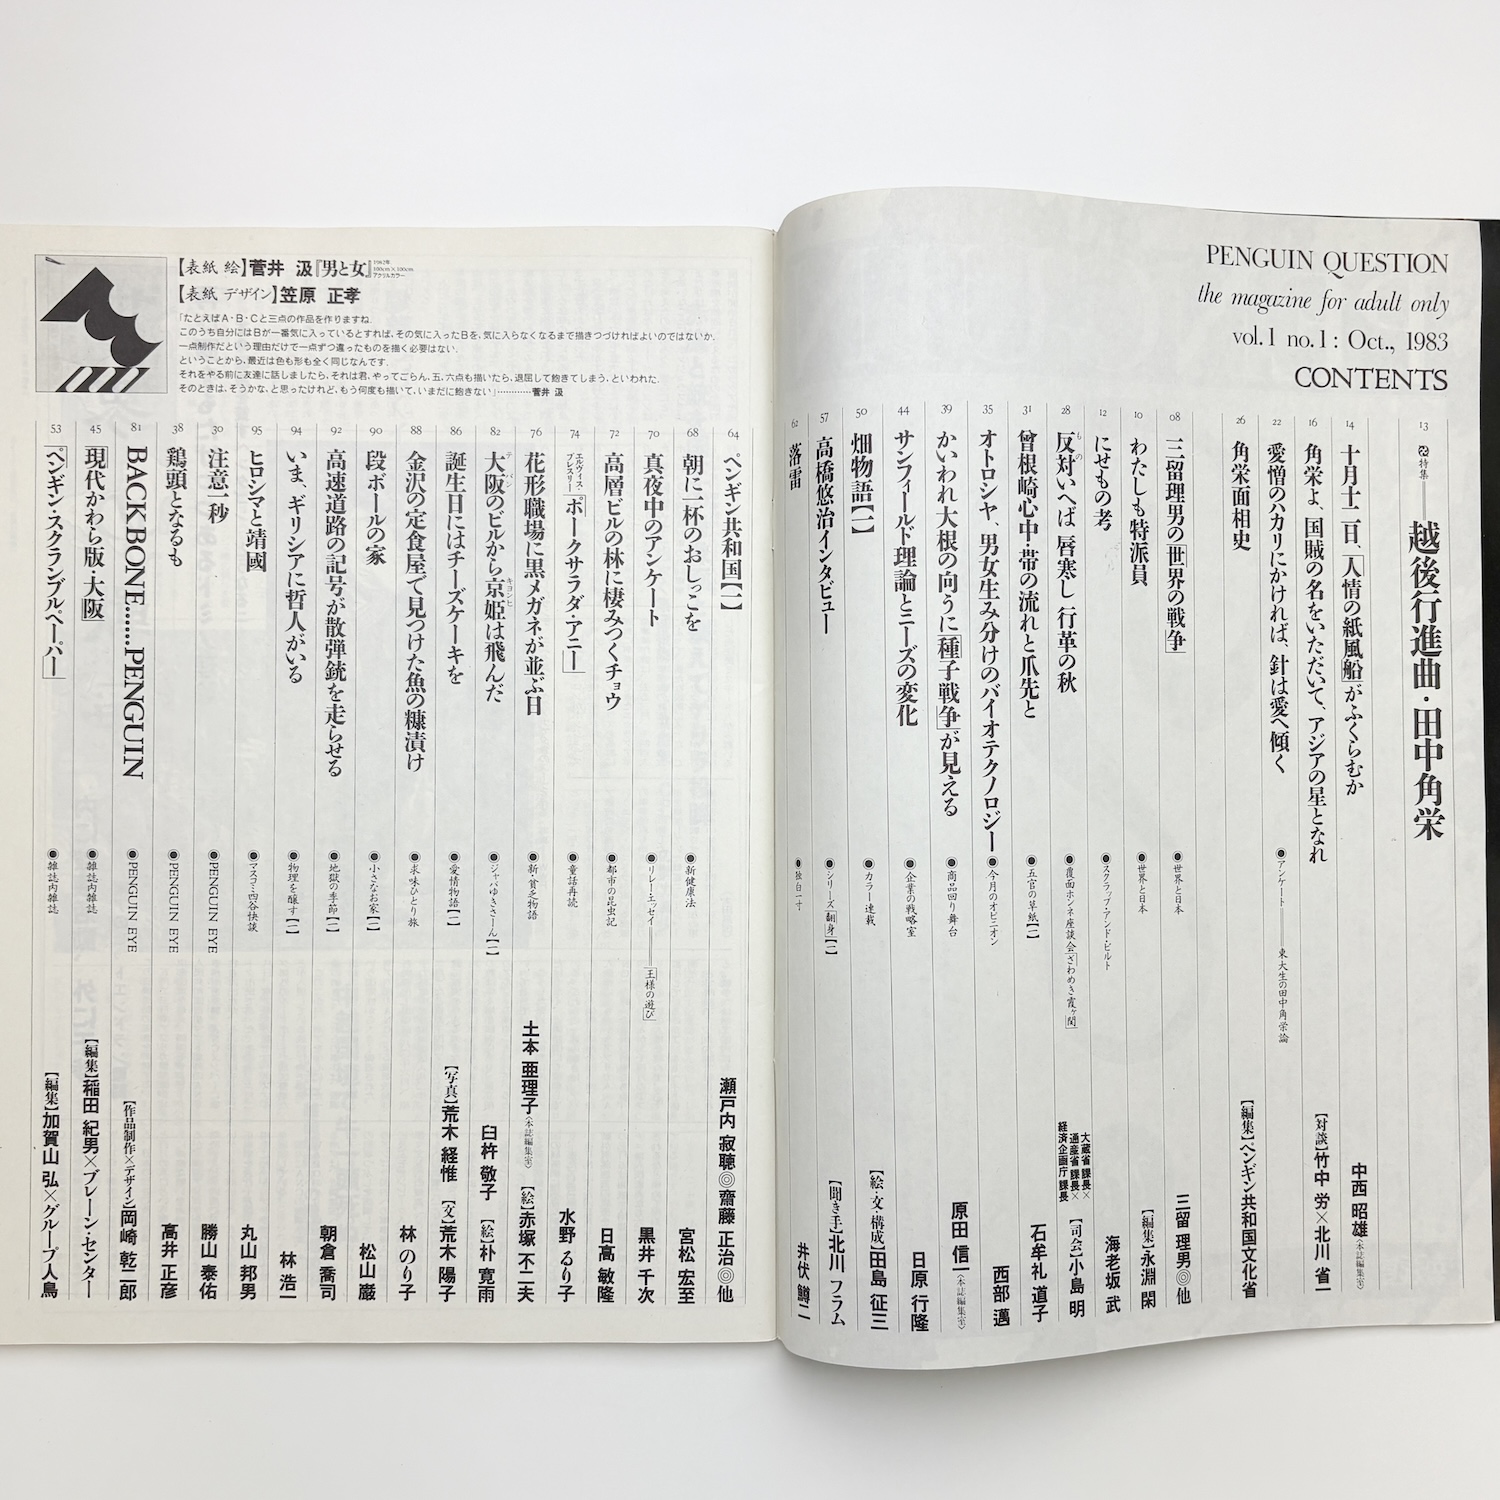 PENGUIN QUESTION
the magazine for adult only
vol.1 no.1: Oct., 1983
CONTENTS
13 特集 越後行進曲・田中角栄
14 十月十二日、「人情の紙風船」がふくらむか 中西 昭雄〈本誌編集室〉
16 角栄よ、国賊の名をいただいて、アジアの星となれ 【対談】竹中 労×北川 省一
22 愛憎のハカリにかければ、針は愛へ傾く ●アンケート 東大生の田中角栄論
26 角栄面相史 【編集】ペンギン共和国文化省
08 三留理男の「世界の戦争」 ●世界と日本 三留 理男◎他
10 わたしも特派員 ●世界と日本 【編集】永淵 閑
12 にせもの考 ●スクラップ・アンド・ビルト 海老坂 武
28 反対いへば 唇寒し 行革の秋 ●覆面ホンネ座談会「ざわめき霞ヶ関」 大蔵省 課長×通産省 課長×経済企画庁 課長 【司会】小島 明
もの
31 曾根崎心中・帯の流れと爪先と ●五官の草紙【一】 石牟礼 道子
35 オトロシヤ、男女生み分けのバイオテクノロジー ●今月のオピニオン 西部 邁
39 かいわれ大根の向うに「種子戦争」が見える ●商品回り舞台 原田 信一〈本誌編集室〉
44 サンフィールド理論とニーズの変化 ●企業の戦略室 日原 行隆
50 畑物語【一】 ●カラー連載 【絵・文・構成】田島 征三
57 高橋悠治インタビュー ●シリーズ「翻身」【一】 【聞き手】北川 フラム
62 落雷 ●独白一寸 井伏 鱒二
【表紙 絵】菅井 汲『男と女』1982年 100cm×100cm アクリルカラー
【表紙 デザイン】笠原 正孝
「たとえばA・B・Cと三点の作品を作りますね.
このうち自分にはBが一番気に入っているとすれば、その気に入ったBを、気に入らなくなるまで描きつづければよいのではないか.
一点制作だという理由だけで一点ずつ違ったものを描く必要はない.
ということから、最近は色も形も全く同じなんです.
それをやる前に友達に話しましたら、それは君、やってごらん、五、六点も描いたら、退屈して飽きてしまう、といわれた.
そのときは、そうかな、と思ったけれど、もう何度も描いて、いまだに飽きない」…………菅井 汲
64 ペンギン共和国【一】 瀬戸内 寂聴◎齋藤 正治◎他
68 朝に一杯のおしっこを ●新健康法 宮松 宏至
70 真夜中のアンケート ●リレー・エッセイ「王様の遊び」 黒井 千次
72 高層ビルの林に棲みつくチョウ ●都市の昆虫記 日高 敏隆
74 エルヴィス・プレスリー「ポークサラダ・アニー」 ●童話再読 水野 るり子
76 花形職場に黒メガネが並ぶ日 ●新・貧乏物語 土本 亜理子〈本誌編集室〉 【絵】赤塚 不二夫
82 大阪のビルから京姫は飛んだ ●ジャパゆきさーん【一】 臼杵 敬子 【絵】朴 寛雨
テバン
キョンヒ
86 誕生日にはチーズケーキを ●愛情物語【一】 【写真】荒木 経惟 【文】荒木 陽子
88 金沢の定食屋で見つけた魚の糠漬け ●求味ひとり旅 林 のり子
90 段ボールの家 ●小さなお家【一】 松山 巖
92 高速道路の記号が散弾銃を走らせる ●地獄の季節【一】 朝倉 喬司
94 いま、ギリシアに哲人がいる ●物理を醸す【一】 林 浩一
95 ヒロシマと靖國 ●マスコミ四谷快談 丸山 邦男
30 注意一秒 ●PENGUIN EYE 勝山 泰佑
38 鶏頭となるも ●PENGUIN EYE 高井 正彦
81 BACK BONE……PENGUIN ●PENGUIN EYE 【作品制作×デザイン】岡崎 乾二郎
45 「現代かわら版・大阪」 ●雑誌内雑誌 【編集】稲田 紀男×ブレーン・センター
53 「ペンギン・スクランブルペーパー」 ●雑誌内雑誌 【編集】加賀山 弘×グループ人鳥